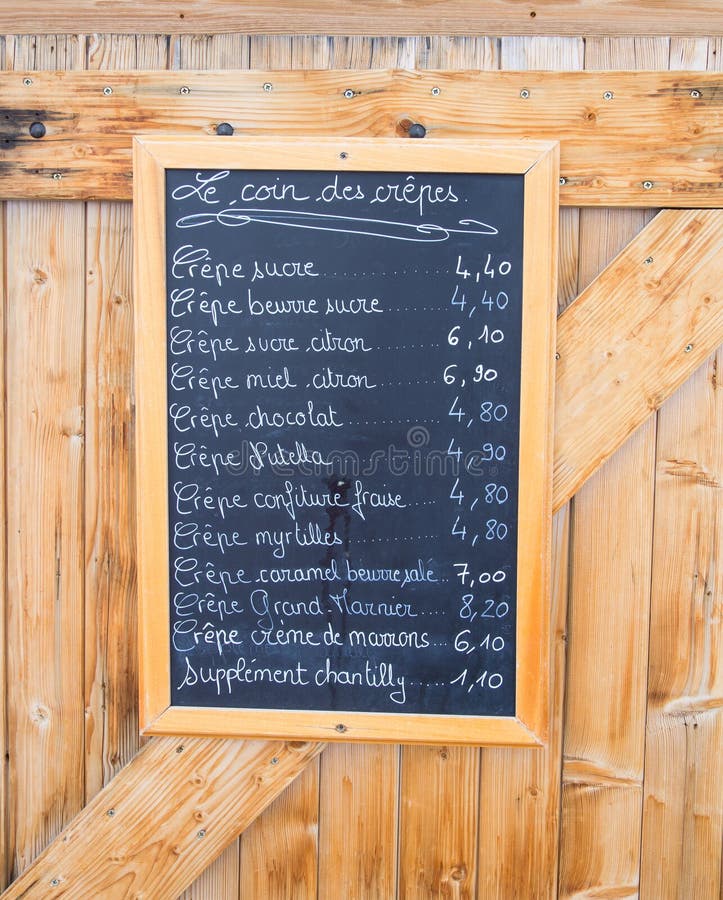 Le coin des crêpes.
Crêpe sucre ............... 4,40
Crêpe beurre sucre ......... 4,40
Crêpe sucre citron ......... 6,10
Crêpe miel citron ......... 6,90
Crêpe chocolat ............. 4,80
Crêpe Nutella .............. 4,90
Crêpe confiture fraise ..... 4,80
Crêpe myrtilles ............ 4,80
Crêpe caramel beurre salé ... 7,00
Crêpe Grand-Marnier ..... 8,20
Crêpe crème de marrons ... 6,10
Supplément chantilly ..... 1,10
dreamstime